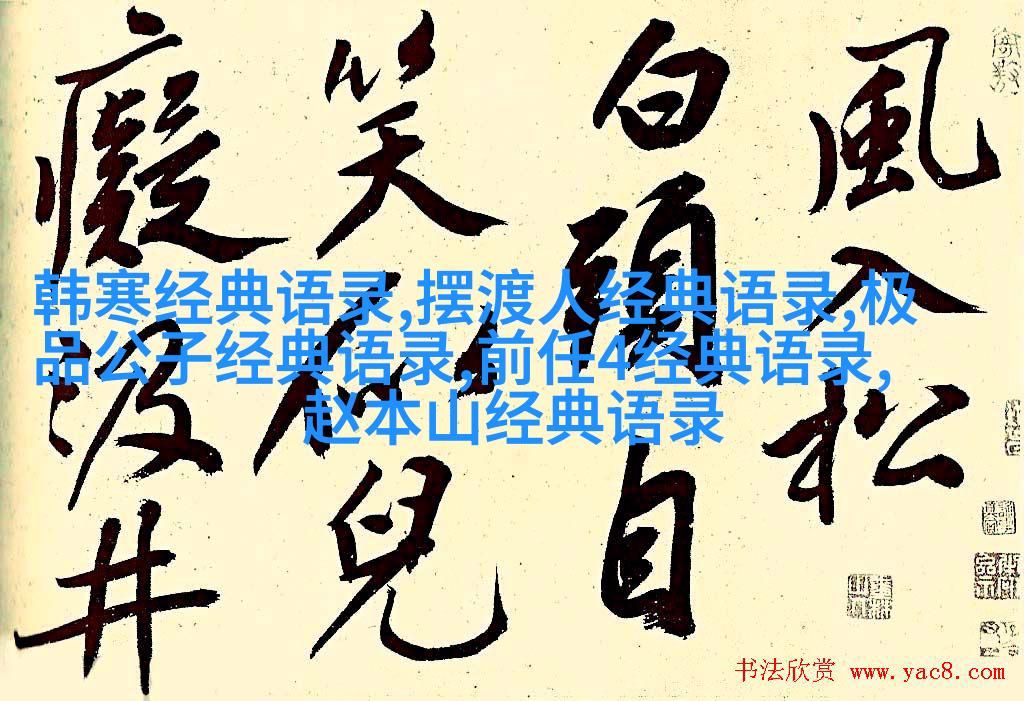 風入松
白頭自
笑兒
癡汲井
韩寒经典语录,摆渡人经典语录,极
品公子经典语录,前任4经典语录,
赵本山经典语录
书法欣赏 www.yac8.com